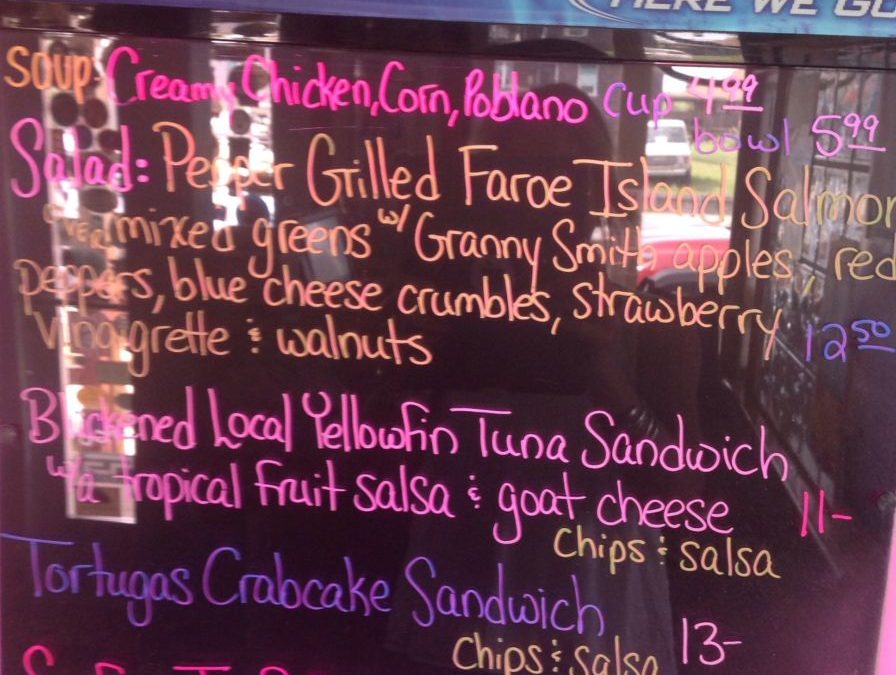 HERE WE GO
Soup: Creamy Chicken, Corn, Poblano Cup 4.99
bowl 5.99
Salad: Pepper Grilled Faroe Island Salmon
over mixed greens w/ Granny Smith apples, red
peppers, blue cheese crumbles, strawberry
vinaigrette & walnuts 12.50
Blackened Local Yellowfin Tuna Sandwich
w/a tropical fruit salsa & goat cheese 11-
Chips & salsa
Tortugas Crabcake Sandwich
Chips & salsa 13-